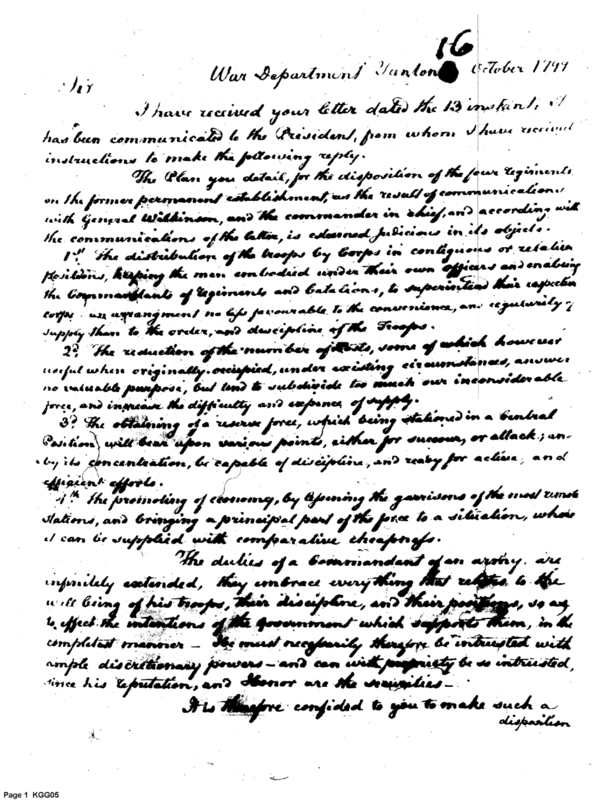 16
War Department Trenton October 1799
Sir
I have received your letter dated the 13 instant, it
has been communicated to the President, from whom I have received
instructions to make the following reply.
The Plan you detail, for the disposition of the four regiments
on the former permanent establishment, as the result of communications
with General Wilkinson, and the commander in chief, and according with
the communications of the latter, is esteemed judicious in its objects.
1st The distribution of the troops by Corps in contiguous or relative
positions, keeping the men embodied under their own officers and enabling
the Commandants of regiments and Batalions, to superintend their respective
corps an arrangment no less favourable to the convenience, and regularity of
supply than to the order, and discipline of the Troops.
2d. The reduction of the number of Posts, some of which however
useful when originally occupied, under existing circumstances, answer
no valuable purpose, but tend to subdivide too much our inconsiderable
force, and increase the difficulty and expence of supply.
3d The obtaining of a reserve force, which being stationed in a Central
Position will bear upon various points, either for succour, or attack; and
by its concentration, be capable of discipline, and ready for active, and
efficient efforts.
4th The promoting of economy, by lessening the garrisons of the most remote
stations, and bringing a principal part of the force to a situation, where
it can be supplied with comparative cheapness.
The duties of a Commandant of an army, are
infinitely extended, they embrace everything that relates to the
well being of his troops, their discipline, and their positions, so as
to effect the intentions of the Government which supports them, in the
completest manner — He must necessarily therefore be intrusted with
ample discretionary powers — and can with propriety be so intrusted,
since his reputation, and Honor are the securities —
It is therefore confided to you to make such a
disposition
Page 1 KGG05